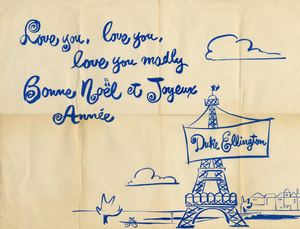 Love you, love you,
love you madly
Bonne Noël et Joyeux
Année
Duke Ellington